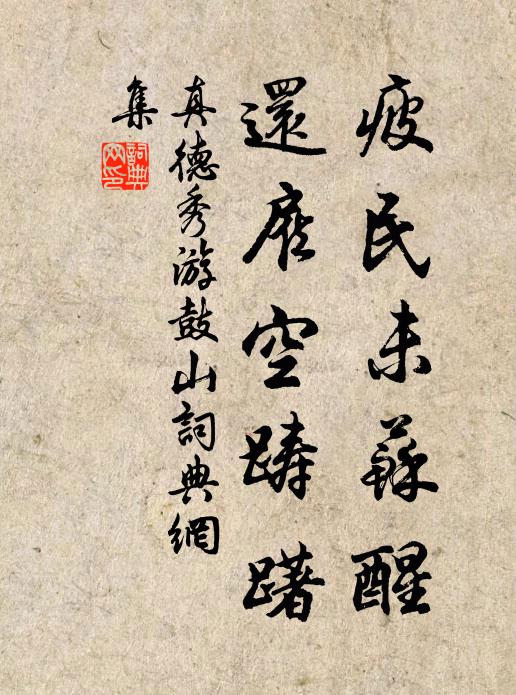 疲民未蘇醒
還空躊躇
真德秀游鼓山詞典網
集
詞典网印